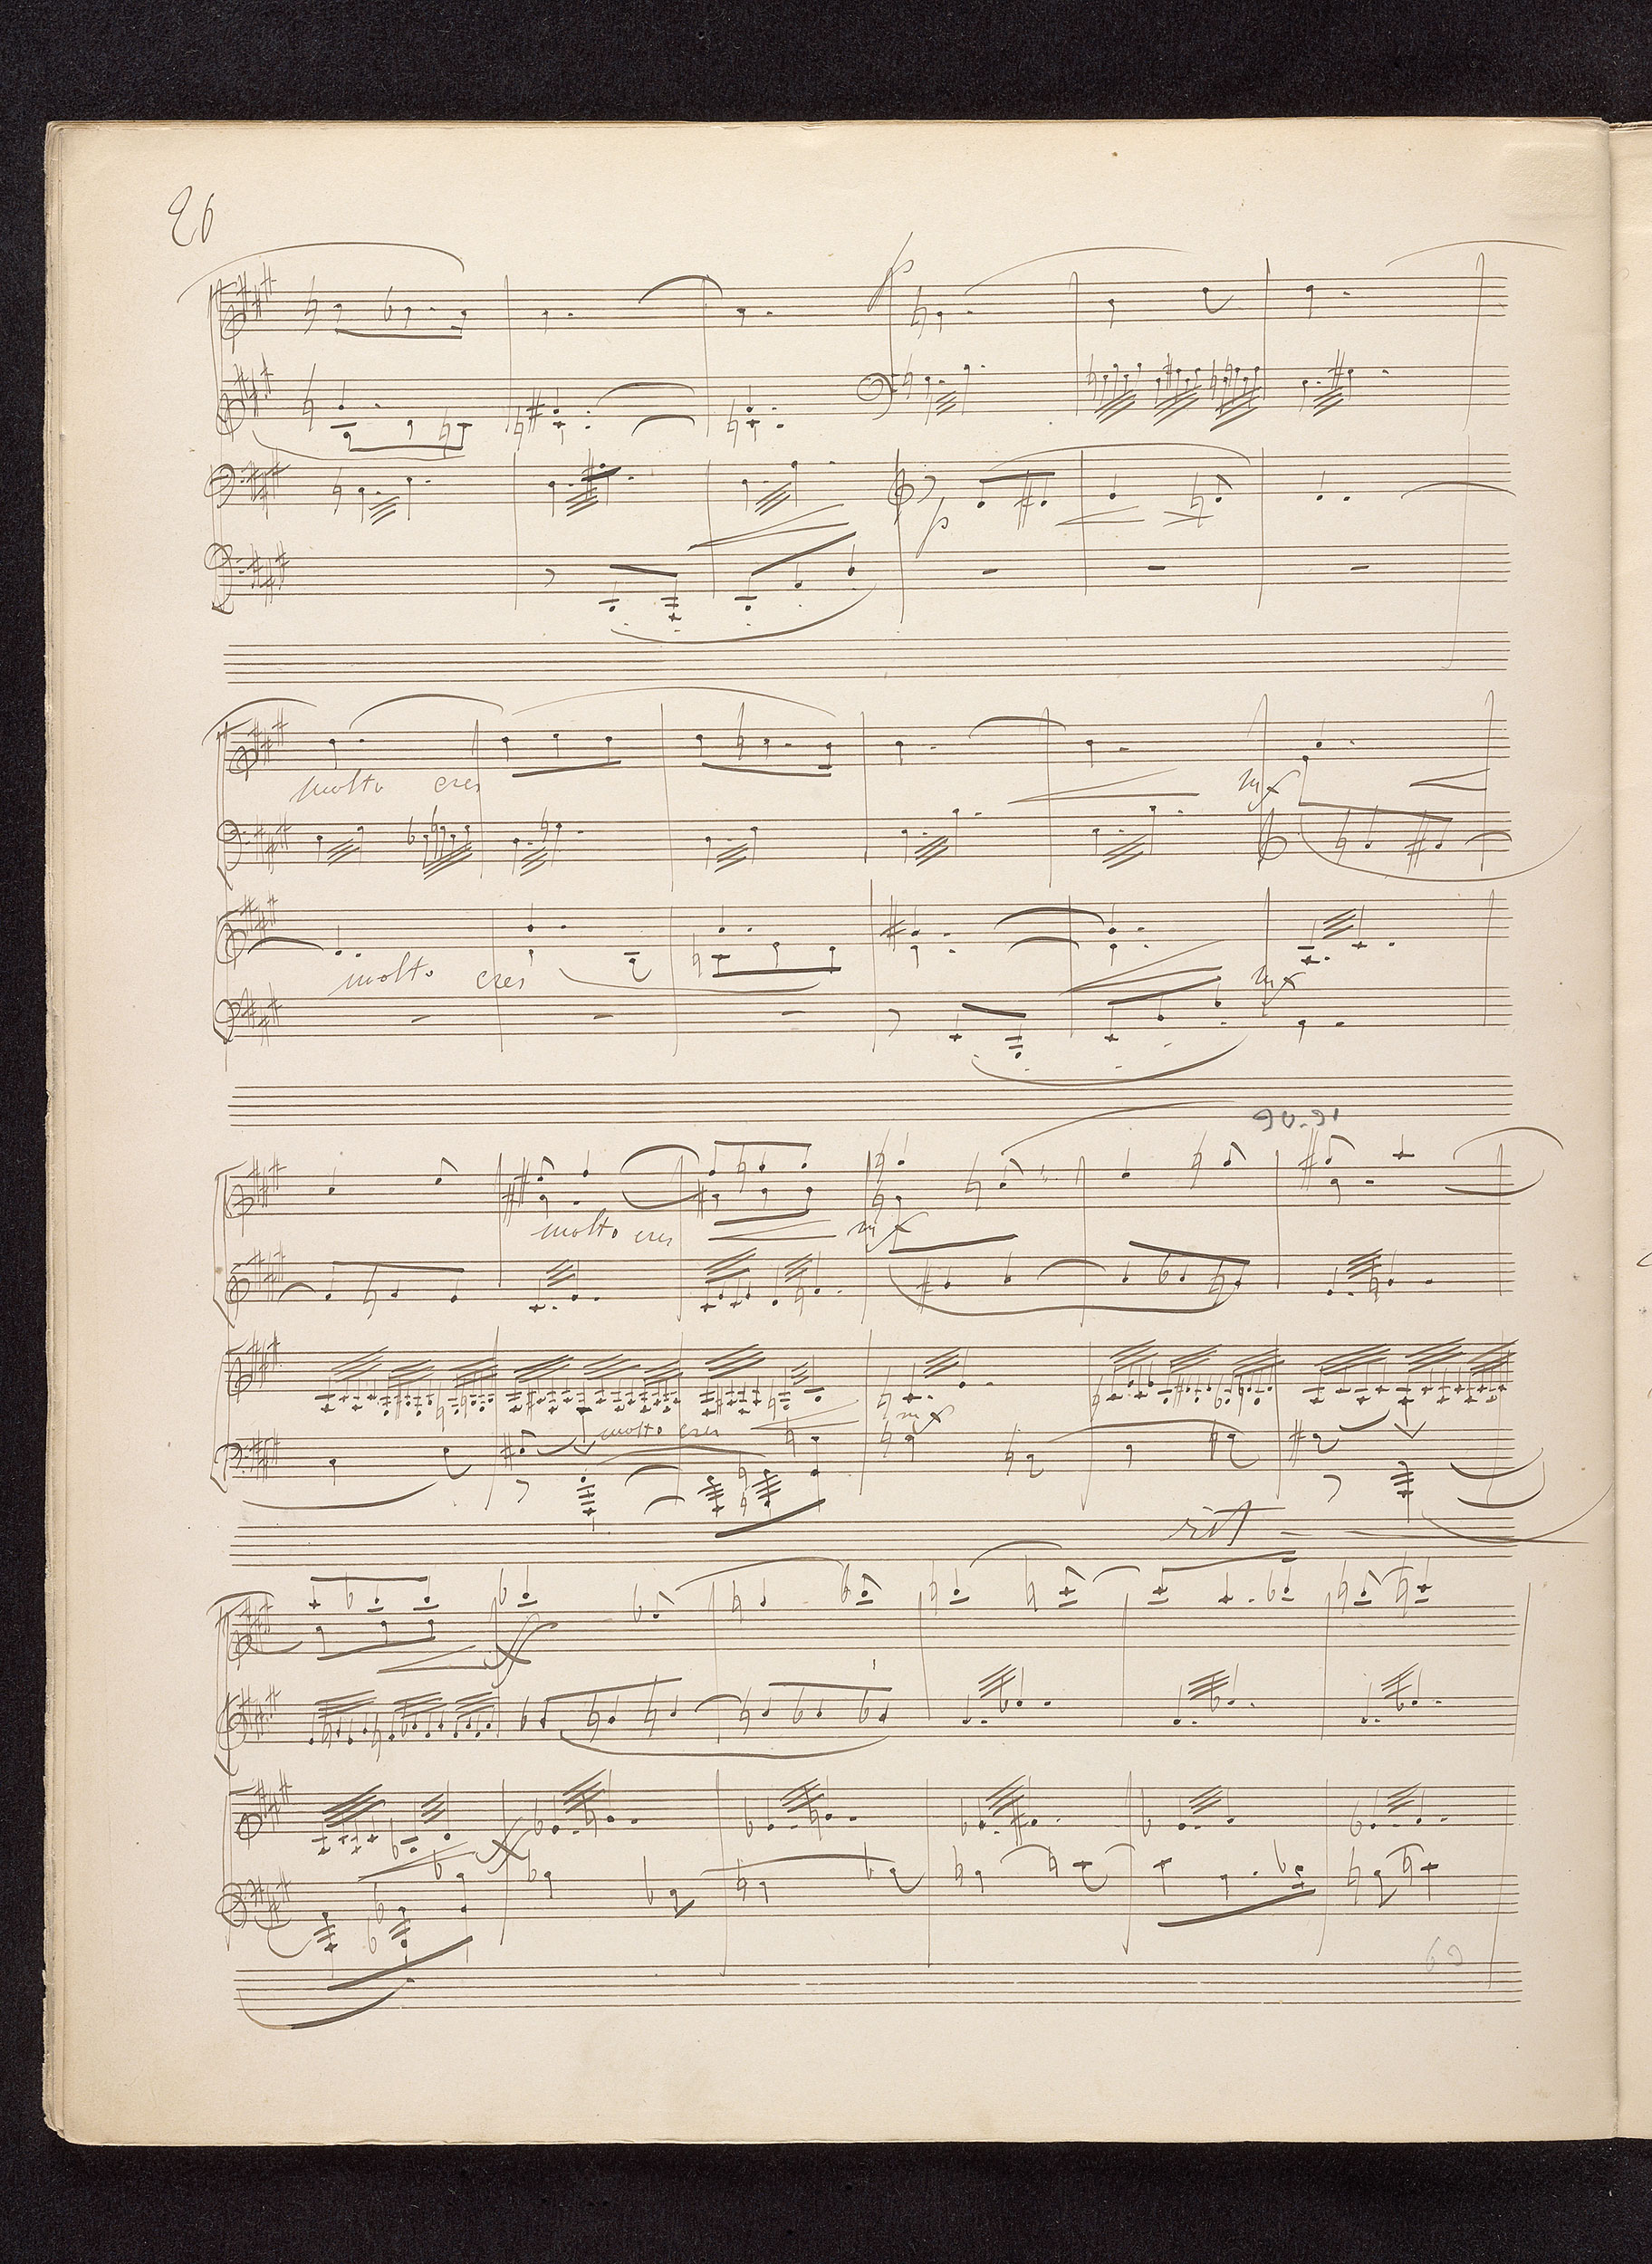 26
p
p
molto cres
mf
molto cres
mf
90-91
molto cres mf
molto cres
mf
rit
f
f